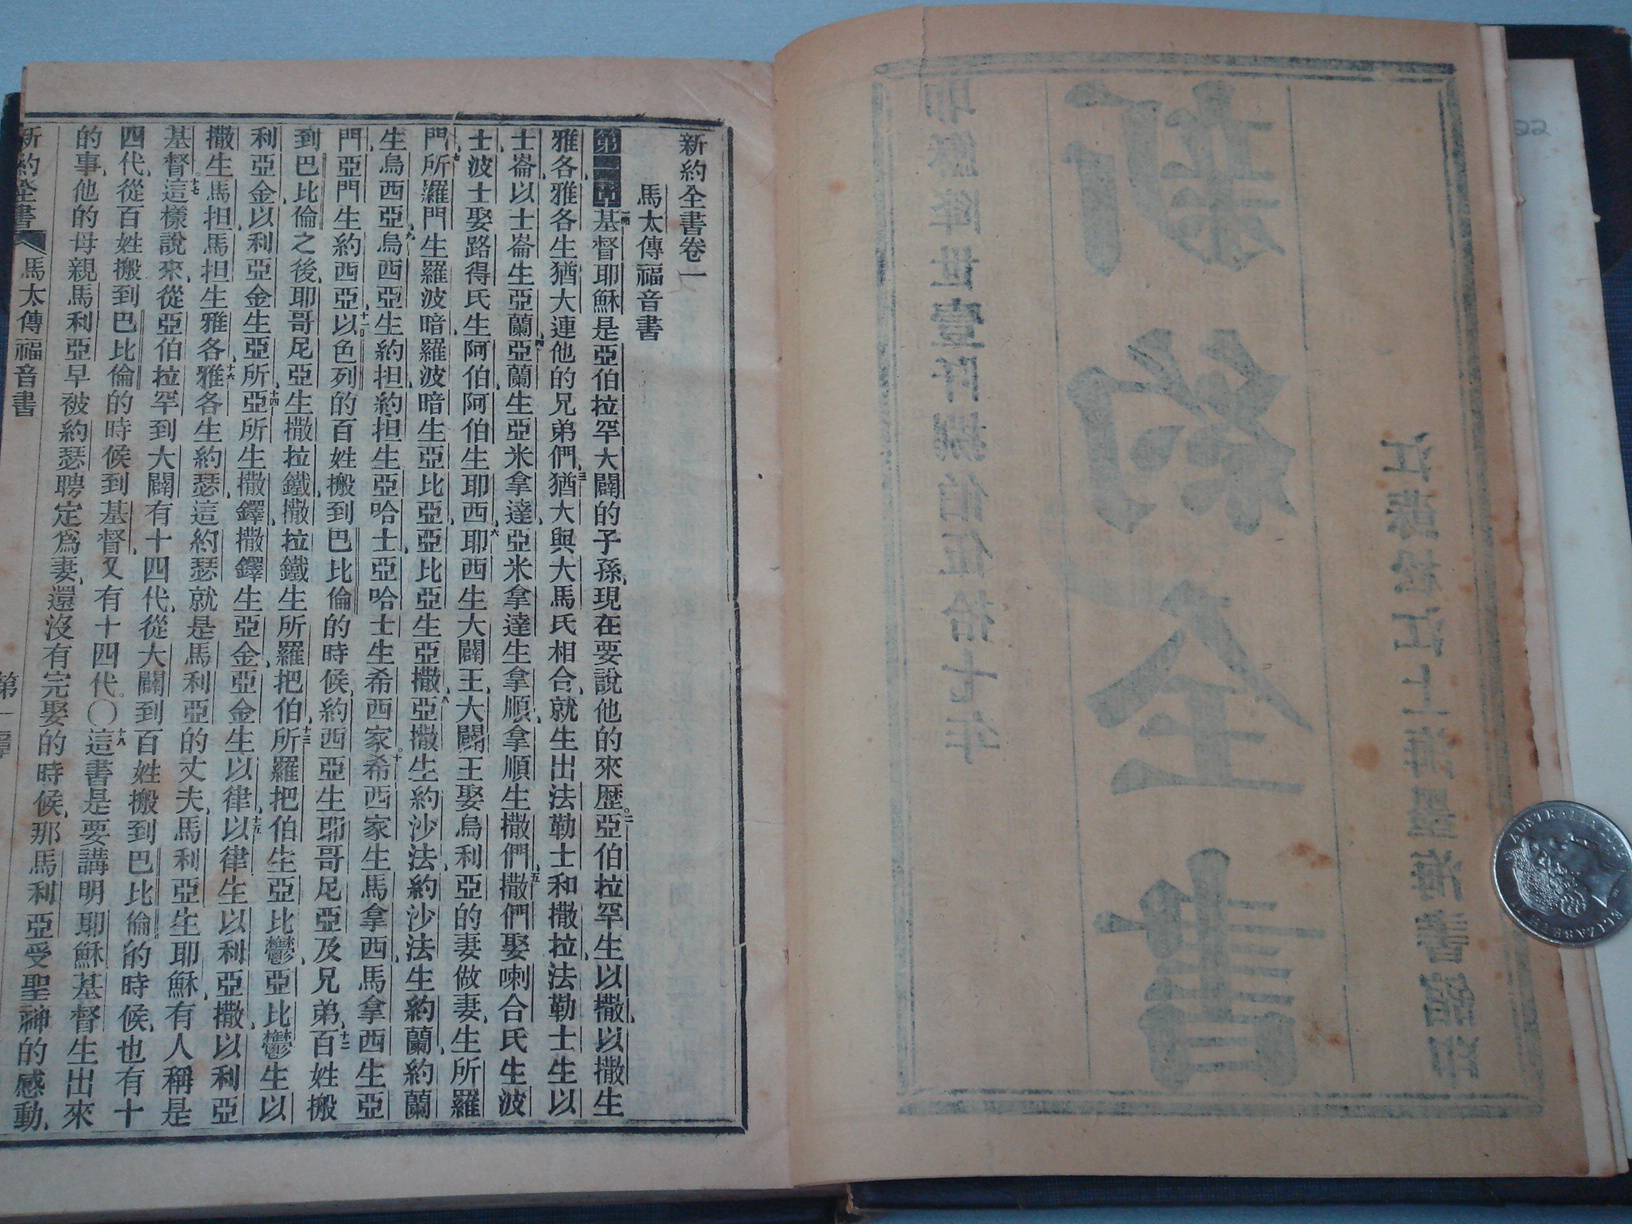 江蘇松江上海墨海書館印
新約全書
耶穌降世壹阡捌伯伍拾七年
22
新約全書卷一
馬太傳福音書
第一章 一基督耶穌是亞伯拉罕大闢的子孫、現在要說他的來歷。二亞伯拉罕生以撒、以撒生
雅各、雅各生猶大連他的兄弟們、三猶大與大馬氏相合、就生出法勒士和撒拉、法勒士生以
士崙、以士崙生亞蘭、四亞蘭生亞米拿達、亞米拿達生拿順、拿順生撒們、五撒們娶喇合氏生波
士、波士娶路得氏生阿伯、阿伯生耶西、六耶西生大闢王、大闢王娶烏利亞的妻做妻、生所羅
門、七所羅門生羅波暗、羅波暗生亞比亞、亞比亞生亞撒、八亞撒生約沙法、約沙法生約蘭、約蘭
生烏西亞、九烏西亞生約担、約担生亞哈士、亞哈士生希西家、十希西家生馬拿西、馬拿西生亞
門、亞門生約西亞、十一以色列的百姓搬到巴比倫的時候、約西亞生耶哥尼亞及兄弟、十二百姓搬
到巴比倫之後、耶哥尼亞生撒拉鐵、撒拉鐵生所羅把伯、十三所羅把伯生亞比鬱、亞比鬱生以
利亞金、以利亞金生亞所、十四亞所生撒鐸、撒鐸生亞金、亞金生以律、十五以律生以利亞撒、以利亞
撒生馬担、馬担生雅各、十六雅各生約瑟、這約瑟就是馬利亞的丈夫、馬利亞生耶穌、有人稱是
基督。十七這樣說來、從亞伯拉罕到大闢有十四代、從大闢到百姓搬到巴比倫的時候、也有十
四代、從百姓搬到巴比倫的時候到基督、又有十四代。〇十八這書是要講明耶穌基督生出來
的事、他的母親馬利亞早被約瑟聘定爲妻、還沒有完娶的時候、那馬利亞受聖神的感動、
新約全書 馬太傳福音書 第一章